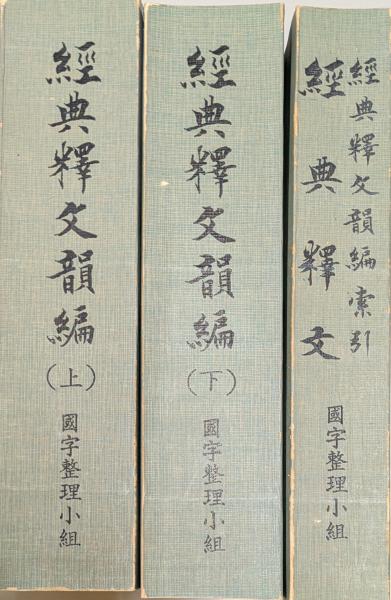 經典釋文韻編(上)
國字整理小組
經典釋文韻編(下)
國字整理小組
經典釋文韻編索引
經典釋文
國字整理小組